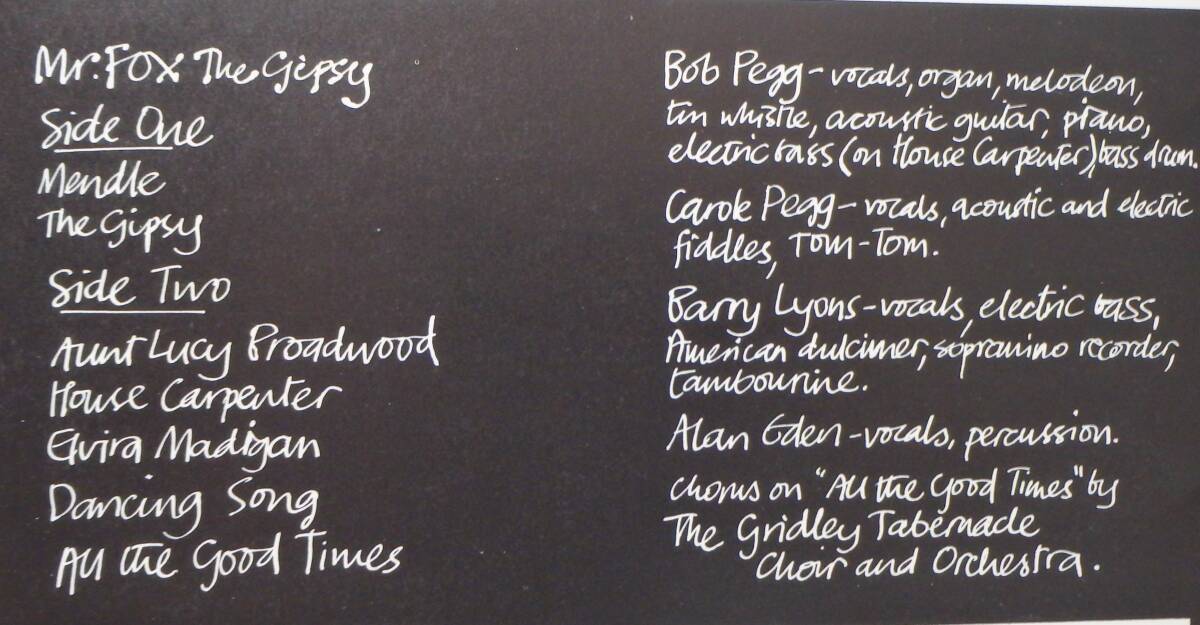 Mr. Fox The Gipsy
Side One
Mendle
The Gipsy
Side Two
Aunt Lucy Broadwood
House Carpenter
Elvira Madigan
Dancing Song
All the Good Times
Bob Pegg - vocals, organ, melodeon,
tin whistle, acoustic guitar, piano,
electric bass (on House Carpenter), bass drum.
Carole Pegg - vocals, acoustic and electric
fiddles, Tom-Tom.
Barry Lyons - vocals, electric bass,
American dulcimer, sopranino recorder,
tambourine.
Alan Eden - vocals, percussion.
Chorus on "All the Good Times" by
The Gridley Tabernacle
Choir and Orchestra.